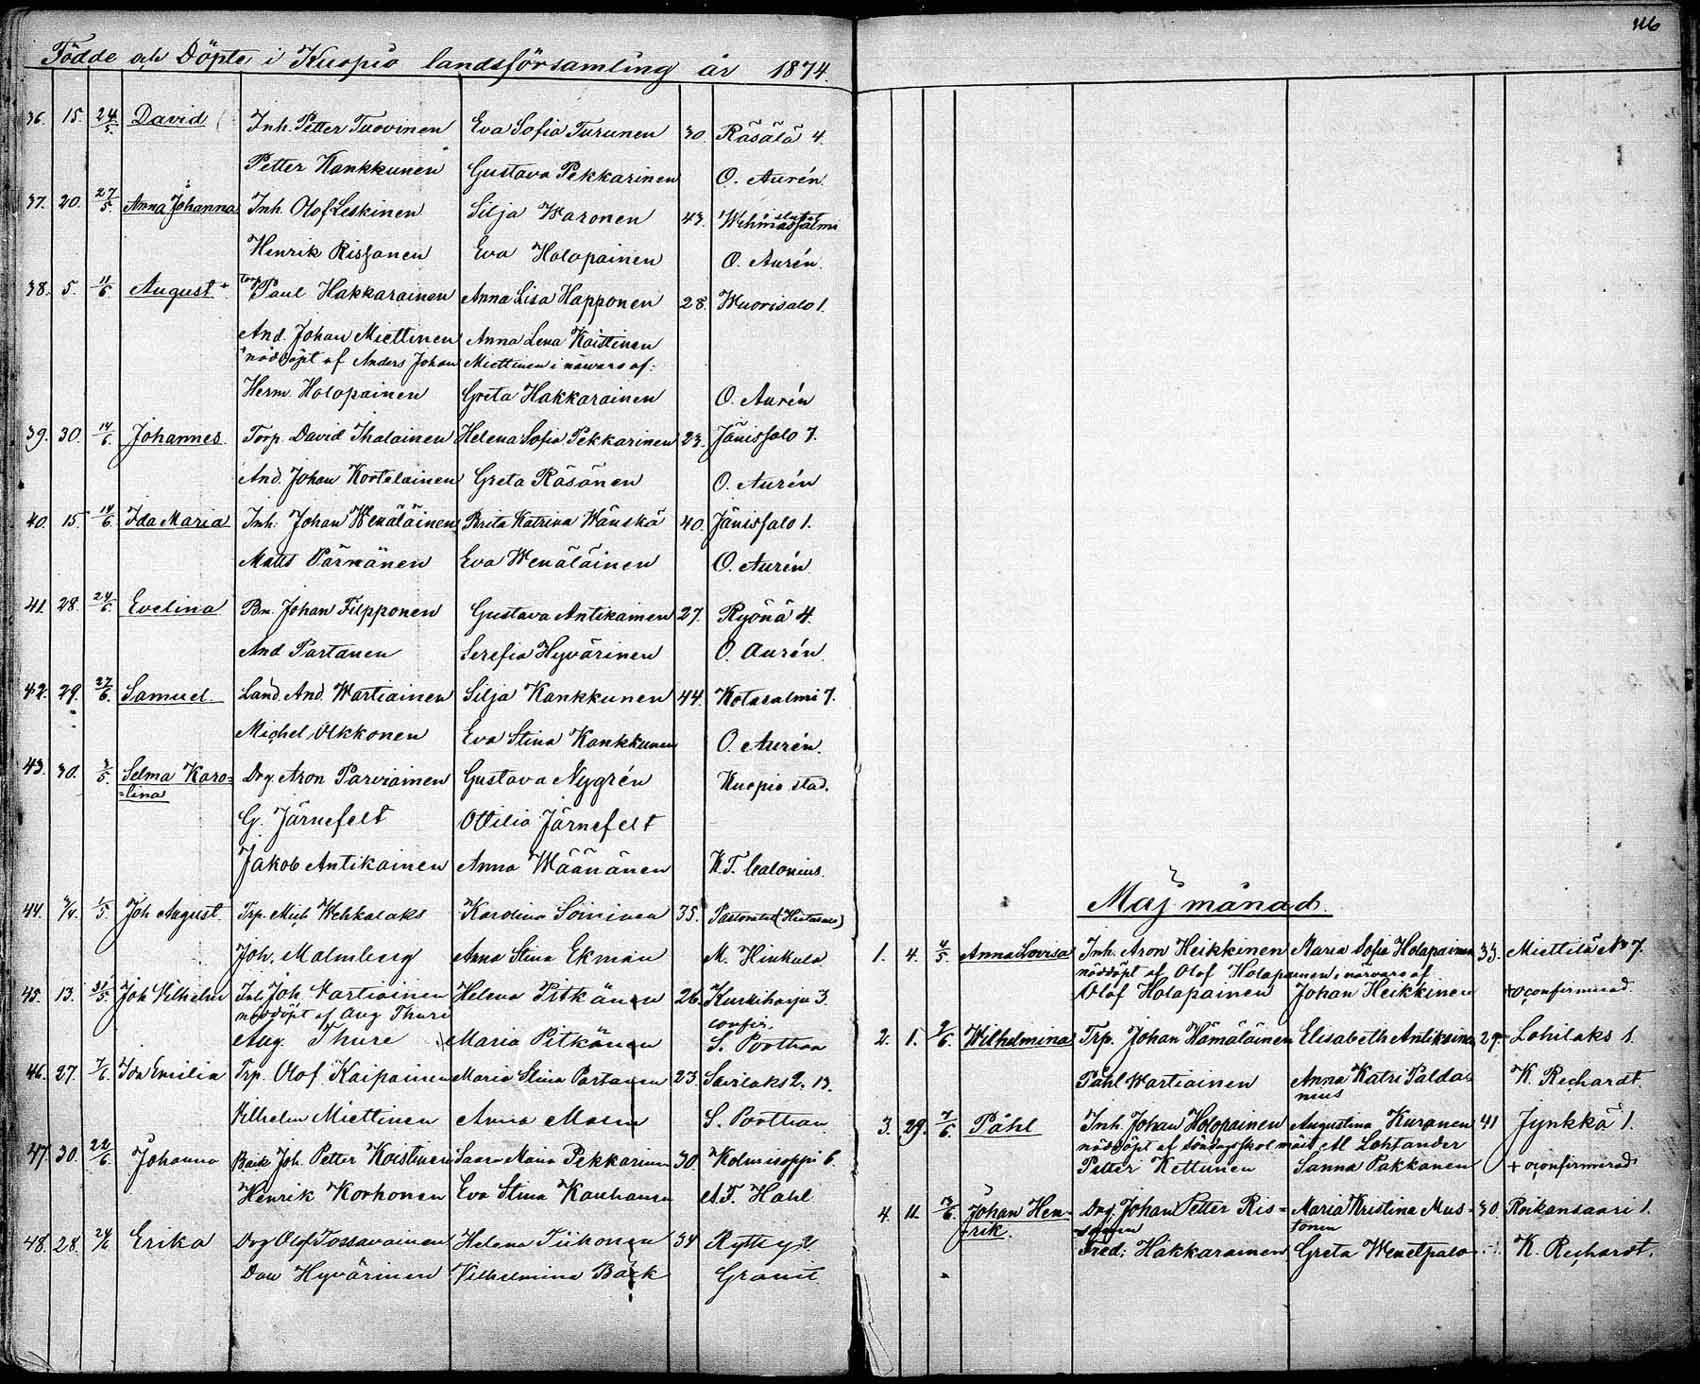 116
Födde och Döpte i Kuopio landsförsamling år 1874.
36. 15. 24/5. David Inh. Petter Tuovinen Eva Sofia Turunen 30. Räsälä 4.
Petter Kankkunen Gustava Pekkarinen O. Aurén.
37. 20. 27/5. Anna Johanna Inh. Olof Leskinen Silja Waronen 43. Wehmassalmi
Henrik Rissanen Eva Holopainen O. Aurén.
38. 5. 11/6. August Torp. Paul Hakkarainen Anna Lisa Happonen 28. Wuorisalo 1.
And. Johan Miettinen Anna Lena Koistinen
nöddöpt af Anders Johan Miettinen i närvaro af:
Herm. Holopainen Greta Hakkarainen O. Aurén
39. 30. 14/6. Johannes. Torp. David Ihalainen Helena Sofia Pekkarinen 23. Jänissalo 7.
And. Johan Kortelainen Greta Räsänen O. Aurén
40. 15. 14/6. Ida Maria Inh: Johan Wenäläinen Brita Katrina Wänskä 40. Jänissalo 1.
Matts Pärnänen Eva Wenäläinen O. Aurén.
41. 28. 24/6. Evelina Bn. Johan Filpponen Gustava Antikainen 27. Ryönä 4.
And Partanen Serefia Hyvärinen O. Aurén.
42. 29. 27/6. Samuel Land. And. Wartiainen Silja Kankkunen 44. Kotasalmi 7.
Michel Ulkkonen Eva Stina Kankkunen O. Aurén.
43. 30. 3/5. Selma Karo= Drg. Aron Parviainen Gustava Nygrén Kuopio stad.
=lina
G. Järnefelt Ottilia Järnefelt
Jakob Antikainen Anna Wäänänen K. T. Calonius.
44. 7/4. 1/5. Joh August. Trp. Mich Wehkalaks Karolina Soininen 35.
Joh. Malmberg Anna Stina Ekman M. Hinkula
45. 13. 31/5. Joh Vilhelm Inh Joh. Vartiainen Helena Pitkänen 26. Kurkiharju 3.
nöddöpt af Aug Thure confir.
Aug. Thure Maria Pitkänen S. Porthan
46. 27. 7/6. Ida Emilia Trp. Olof Kaipainen Maria Stina Partanen 23. Savilaks 2. 13.
Vilhelm Miettinen Anna S. Porthan.
47. 30. 22/6. Johanna Joh. Petter Koistinen Saara Maria Pekkarinen 30. Kolmisoppi 6.
Henrik Korhonen Eva Stina Kauhanen A. F. Hahl
48. 28. 24/6 Erika Drg Olof Tossavainen Helena Tiihonen 34
Dav Hyvärinen Vilhelmina Bäck Granit.
Maj månad.
1. 4. 4/5. Anna Lovisa Inh. Aron Heikkinen Maria Sofia Holopainen 33. Miettilä No 7.
nöddöpt af Olof Holopainen i närvaro af
Olof Holopainen Johan Heikkinen + oconfirmerad.
2. 1. 7/6. Wilhelmina Trp. Johan Hämäläinen Elisabeth Antikainen 29. Lohilaks 1.
Påhl Wartiainen Anna Katri Palda= K. Rechardt.
nius
3. 29. 7/6. Påhl Inh. Johan Holopainen Augustina Kuronen 41 Jynkkä 1.
nöddöpt af söndagsskol mäst. Al Lohtander
Petter Kettunen Sanna Pakkanen + oconfirmerad
4. 11. 13/6. Johan Hen= Drg. Johan Petter Ris= Maria Kristina Mus= 30. Reikansaari 1.
rik. sanen tonen
Fred: Hakkarainen Greta Wenetpalo K. Rechardt.